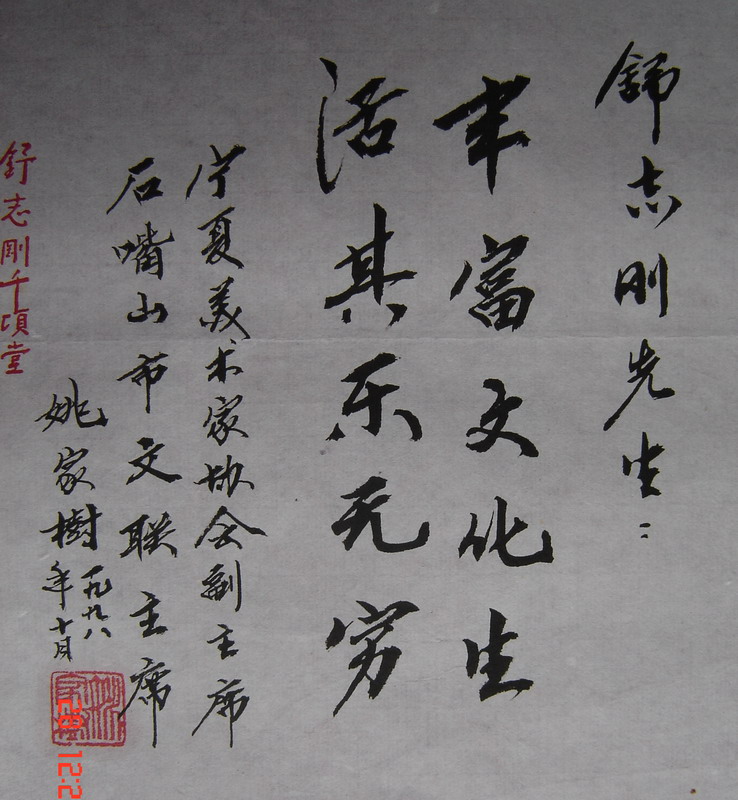 舒志刚先生：
丰富文化生
活其乐无穷
宁夏美术家协会副主席
石嘴山市文联主席
姚家樹
一九九八
年十月
舒志剛千頃堂